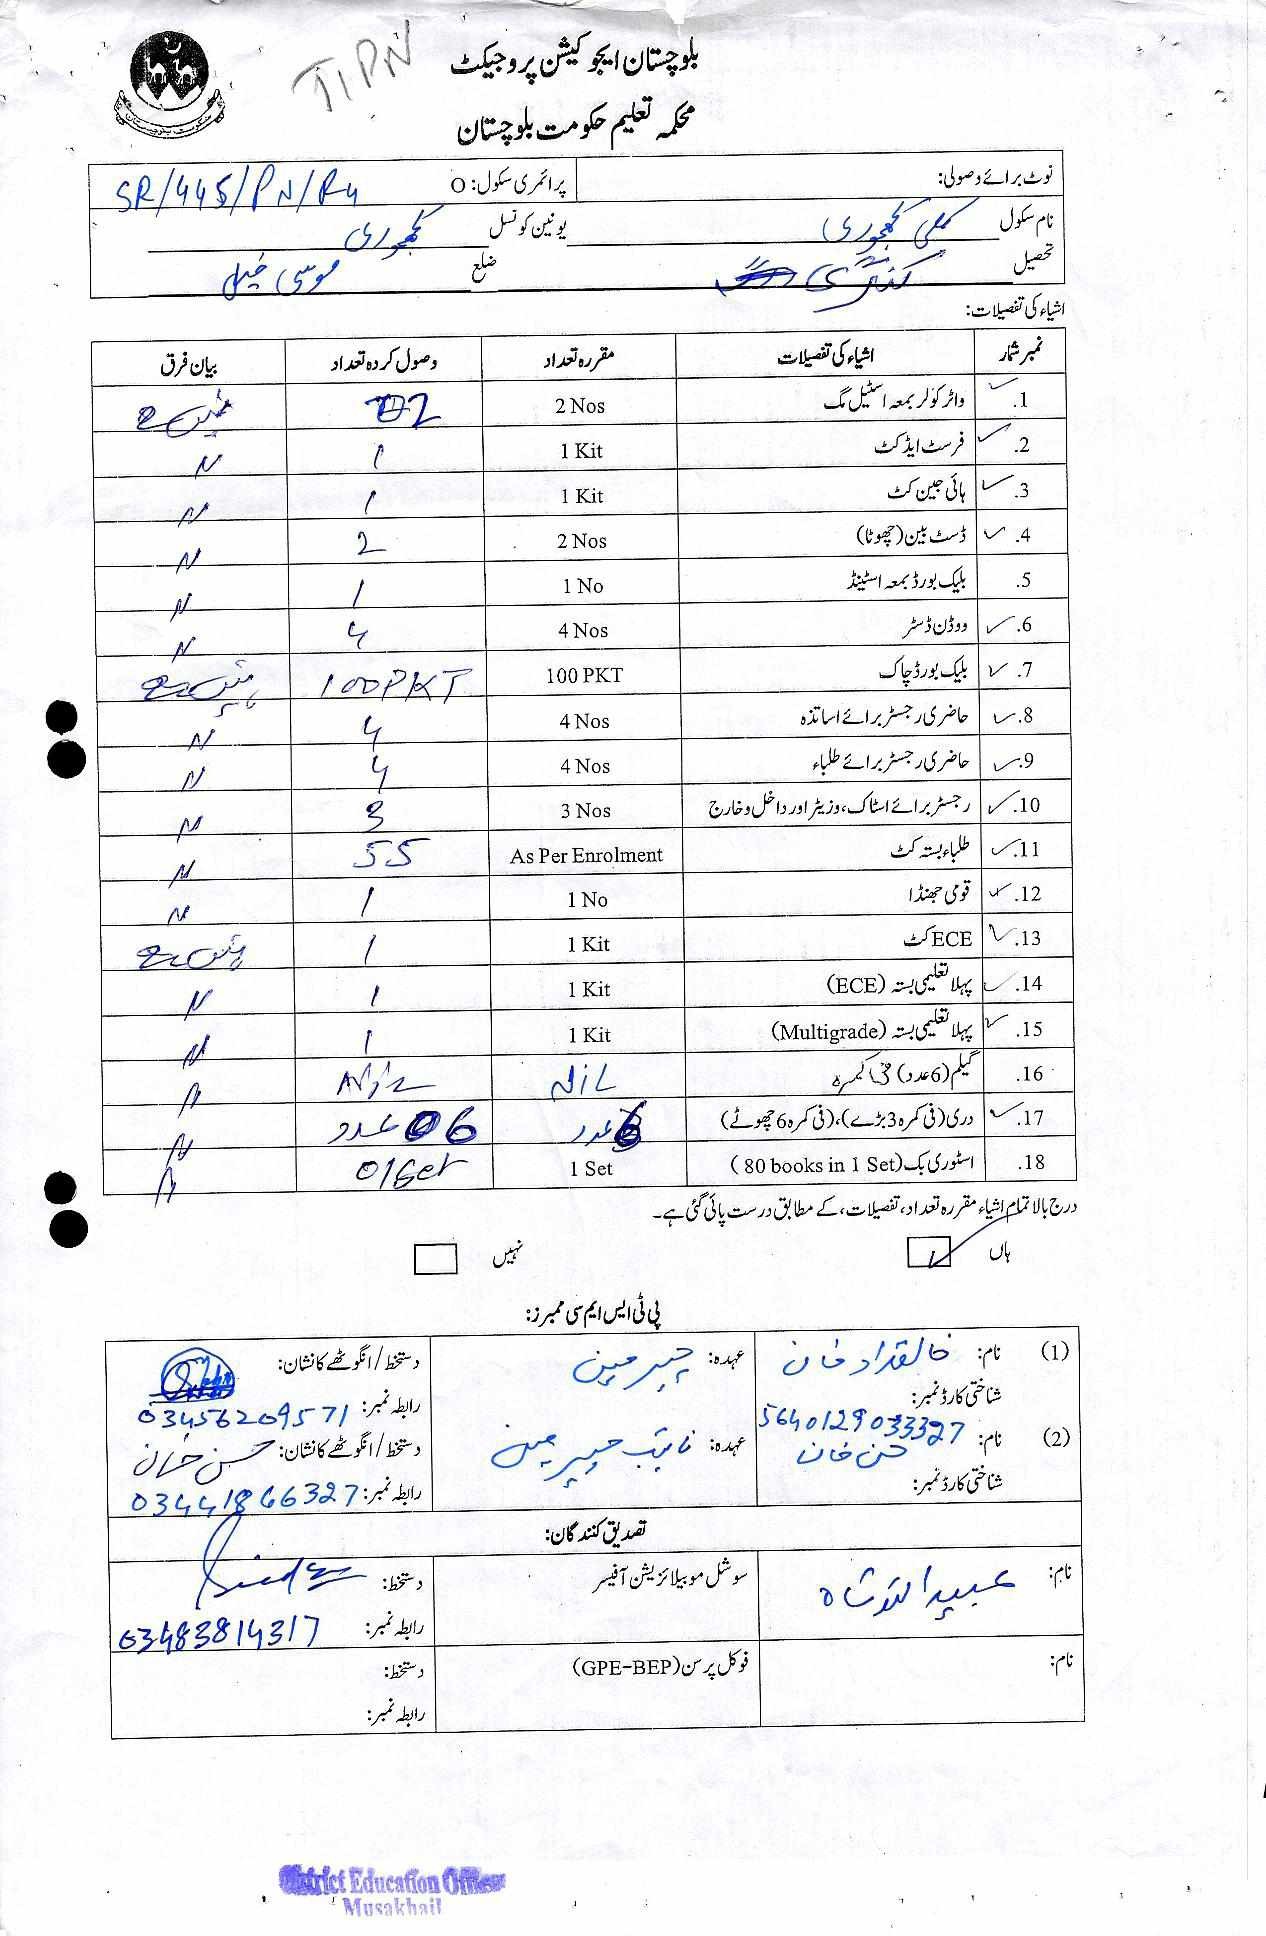 TIPN
بلوچستان ایجوکیشن پروجیکٹ
محکمہ تعلیم حکومت بلوچستان
نوٹ برائے وصولی: پرائمری سکول: O SR/445/PN/R4
نام سکول کلی کھجوری یونین کونسل کھجوری
تحصیل ضلع موسی خیل
اشیاء کی تفصیلات:
نمبر شمار اشیاء کی تفصیلات مقررہ تعداد وصول کردہ تعداد بیان فرق
1. واٹر کولر بمعہ اسٹیل مگ 2 Nos 02 نہیں ہے
2. فرسٹ ایڈ کٹ 1 Kit 1 N
3. ہائی جین کٹ 1 Kit 1 N
4. ڈسٹ بین (چھوٹا) 2 Nos 2 N
5. بلیک بورڈ بمعہ اسٹینڈ 1 No 1 N
6. ووڈن ڈسٹر 4 Nos 4 N
7. بلیک بورڈ چاک 100 PKT 100PKT نہیں ہے
8. حاضری رجسٹر برائے اساتذہ 4 Nos 4 N
9. حاضری رجسٹر برائے طلباء 4 Nos 4 N
10. رجسٹر برائے اسٹاک، وزیٹر اور داخل و خارج 3 Nos 3 N
11. طلباء بستہ کٹ As Per Enrolment 55 N
12. قومی جھنڈا 1 No 1 N
13. ECE کٹ 1 Kit 1 نہیں ہے
14. پہلا تعلیمی بستہ (ECE) 1 Kit 1 N
15. پہلا تعلیمی بستہ (Multigrade) 1 Kit 1 N
16. گیلم (6 عدد) فی کمرہ NiL NiL N
17. دری (فی کمرہ 3 بڑے)، (فی کمرہ 6 چھوٹے) 6 عدد 06 عدد N
18. اسٹوری بک (80 books in 1 Set) 1 Set 01Set N
درج بالا تمام اشیاء مقررہ تعداد، تفصیلات، کے مطابق درست پائی گئی ہے۔
ہاں نہیں
پی ٹی ایس ایم سی ممبرز:
(1) نام: خالقداد خان عہدہ: چیرمین دستخط/انگوٹھے کا نشان:
شناختی کارڈ نمبر: 5640129033327 رابطہ نمبر: 03456209571
(2) نام: حسن خان عہدہ: نائب چیرمین دستخط/انگوٹھے کا نشان: حسن خان
شناختی کارڈ نمبر: رابطہ نمبر: 03441866327
تصدیق کنندگان:
نام: عبید اللہ شاہ سوشل موبیلائزیشن آفیسر دستخط:
رابطہ نمبر: 03483814317
نام: فوکل پرسن (GPE-BEP) دستخط:
رابطہ نمبر:
District Education Officer
Musakhail